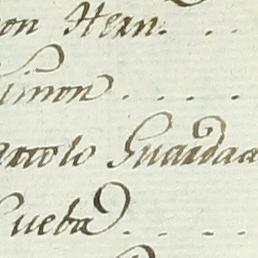 on Hern. . .
Simon . . . .
attolo Guarda
Cueba . . . .